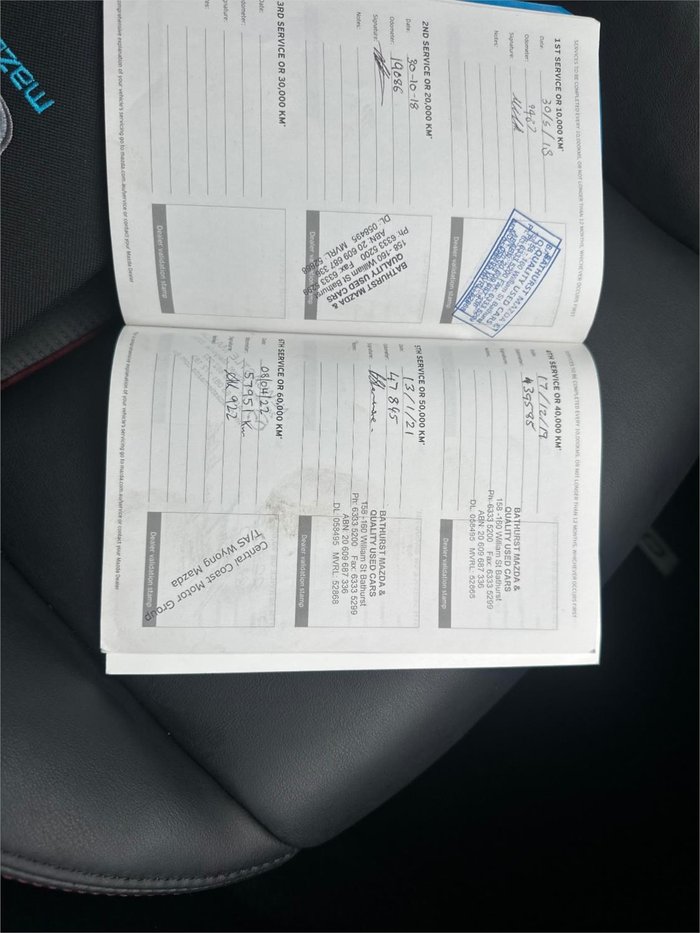 SERVICES TO BE COMPLETED EVERY 10,000KMS, OR NOT LONGER THAN 12 MONTHS, WHICHEVER OCCURS FIRST
1ST SERVICE OR 10,000 KM*
Date: 30/5/18
Odometer: 9987
Signature:
Notes:
BATHURST MAZDA &
QUALITY USED CARS
Dealer validation stamp
2ND SERVICE OR 20,000 KM*
Date: 30-10-18
Odometer: 19086
Signature:
Notes:
BATHURST MAZDA &
QUALITY USED CARS
158 -160 William St Bathurst
Ph: 6333 5200 Fax: 6333 5299
ABN: 20 609 687 336
DL: 058495 MVRL: 52868
Dealer validation stamp
3RD SERVICE OR 30,000 KM*
Date:
Odometer:
Signature:
Notes:
Dealer validation stamp
comprehensive explanation of your vehicle's servicing go to mazda.com.au/service or contact your Mazda Dealer
SERVICES TO BE COMPLETED EVERY 10,000KMS, OR NOT LONGER THAN 12 MONTHS, WHICHEVER OCCURS FIRST
4TH SERVICE OR 40,000 KM*
Date: 17/12/19
Odometer: 39595
Signature:
Notes:
BATHURST MAZDA &
QUALITY USED CARS
158 -160 William St Bathurst
Ph: 6333 5200 Fax: 6333 5299
ABN: 20 609 687 336
DL: 058495 MVRL: 52868
Dealer validation stamp
5TH SERVICE OR 50,000 KM*
Date: 13/1/21
Odometer: 47845
Signature:
Notes:
BATHURST MAZDA &
QUALITY USED CARS
158 -160 William St Bathurst
Ph: 6333 5200 Fax: 6333 5299
ABN: 20 609 687 336
DL: 058495 MVRL: 52868
Dealer validation stamp
6TH SERVICE OR 60,000 KM*
Date: 08/04/22
Odometer: 57951 Km
Signature: 922
Central Coast Motor Group
T/AS Wyong Mazda
Dealer validation stamp
comprehensive explanation of your vehicle's servicing go to mazda.com.au/service or contact your Mazda Dealer
mazda